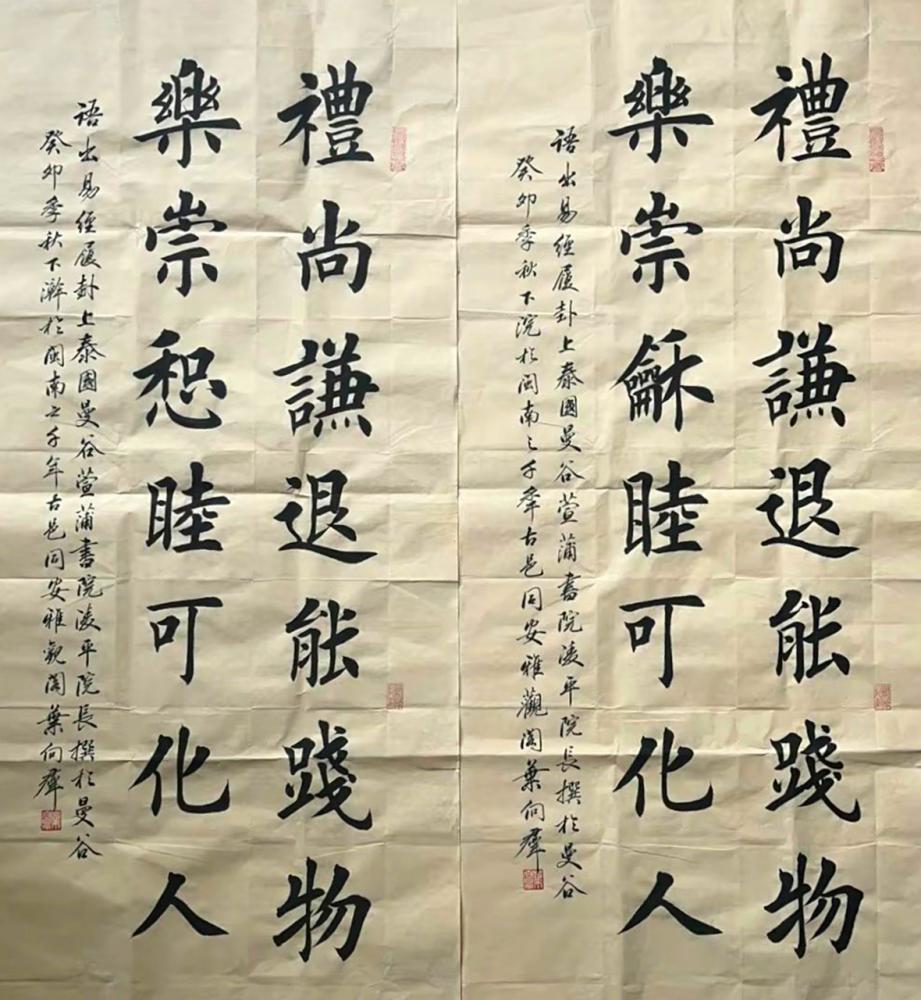 禮尚謙退能踐物
樂崇龢睦可化人
語出易經履卦上泰國曼谷萱蒲書院淩平院長撰於曼谷
癸卯季秋下浣於閩南之千年古邑同安雅觀閣葉向群
禮尚謙退能踐物
樂崇惒睦可化人
語出易經履卦上泰國曼谷萱蒲書院淩平院長撰於曼谷
癸卯季秋下澣於閩南之千年古邑同安雅觀閣葉向群